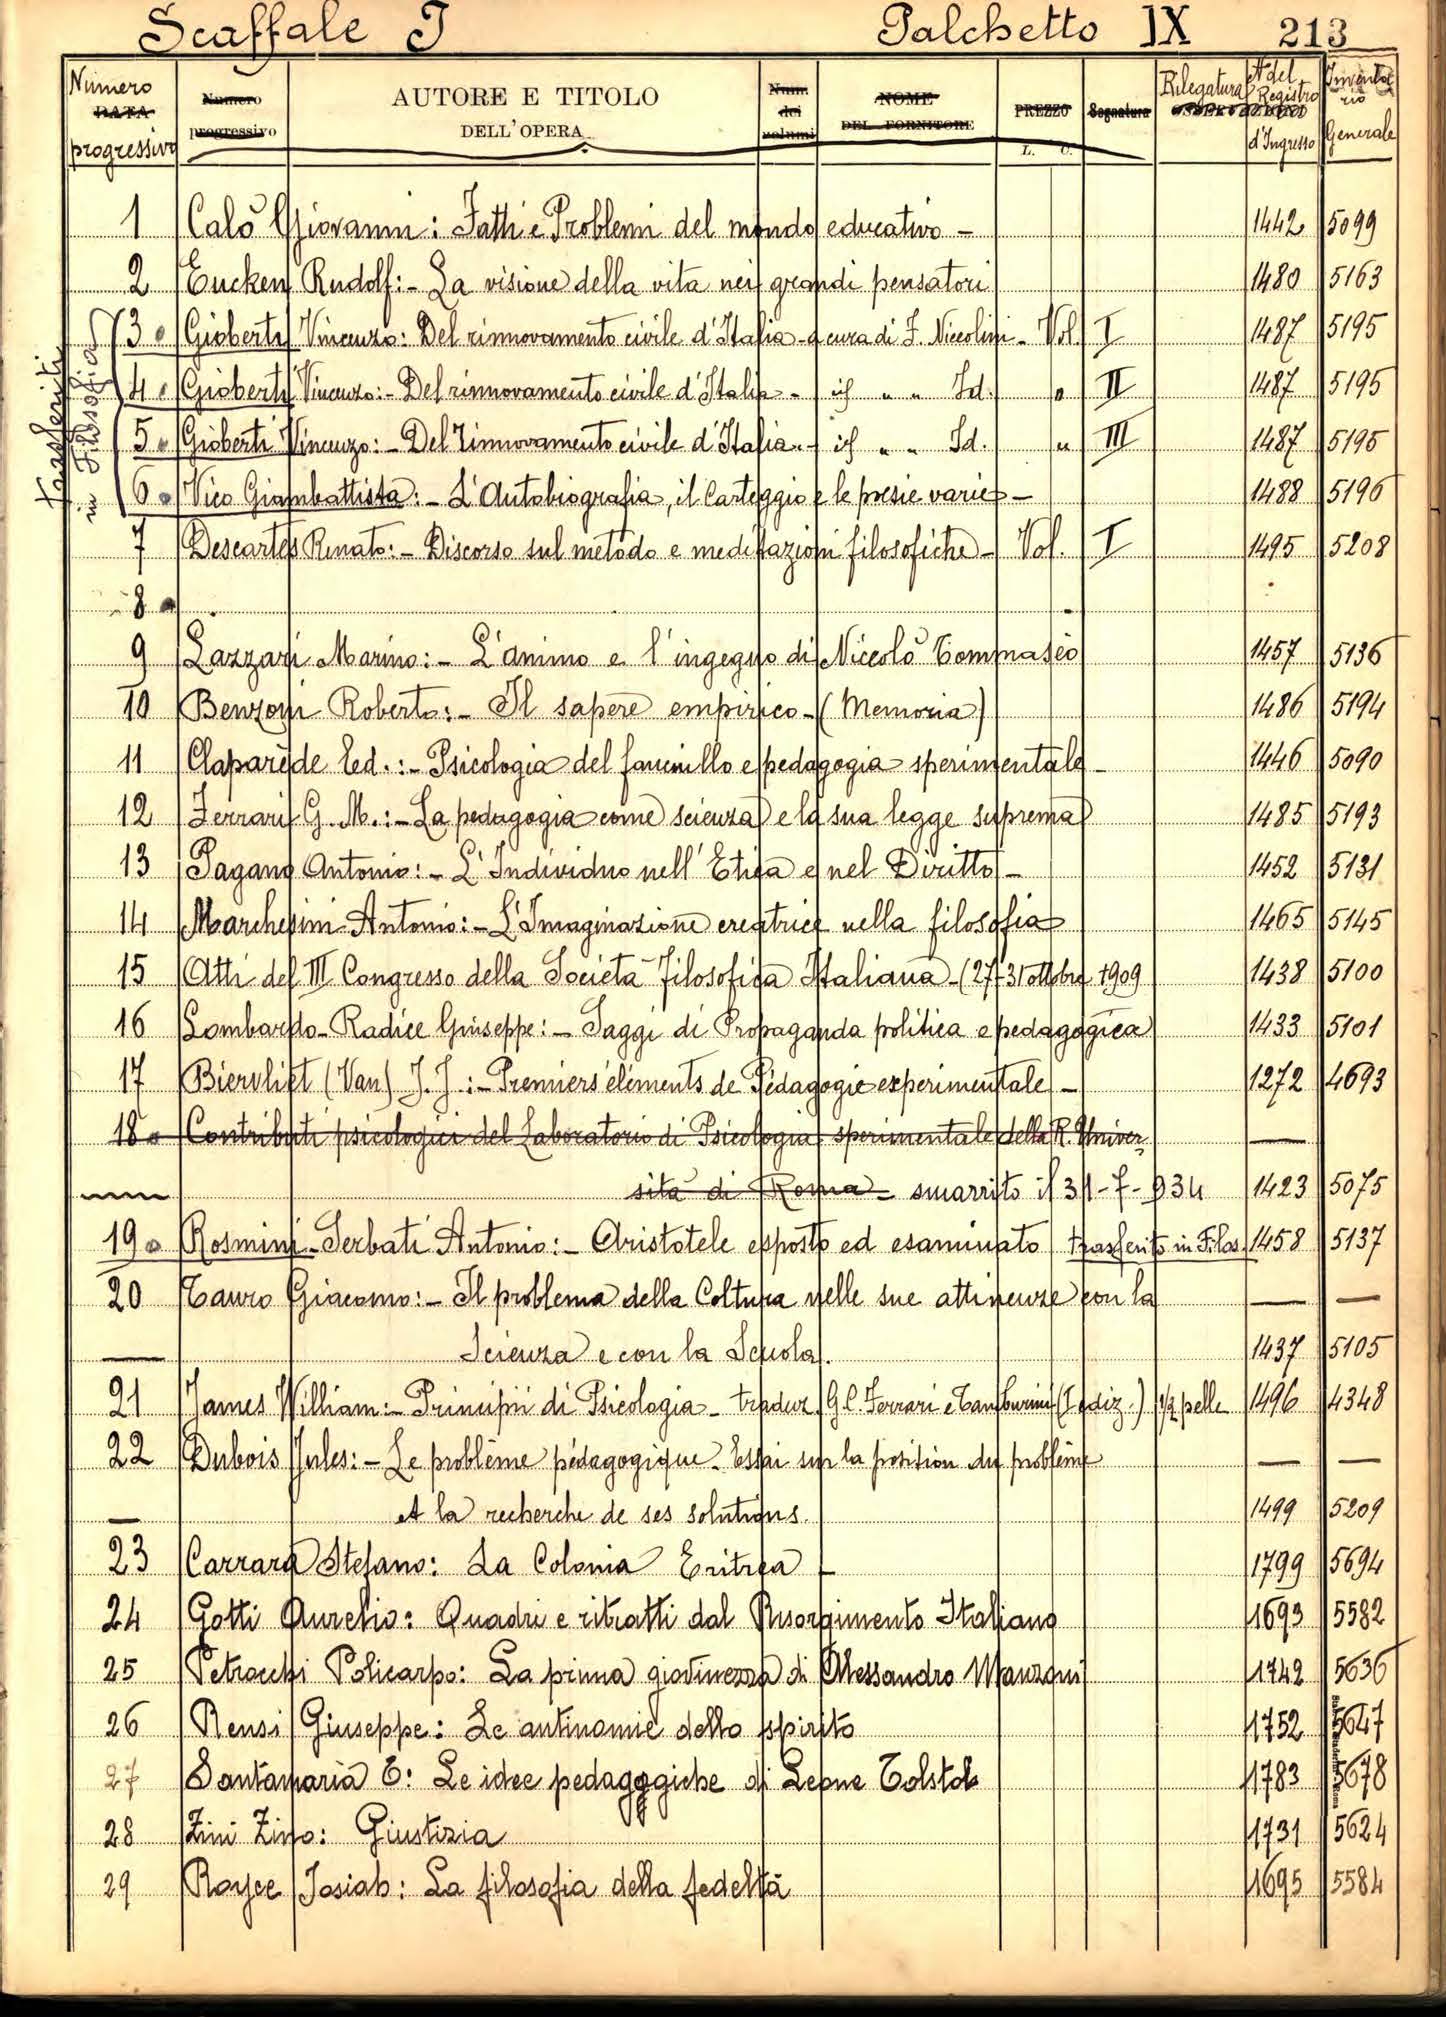 Scaffale I Palchetto IX 213
Numero DATA progressivo
Numero progressivo
AUTORE E TITOLO DELL'OPERA
Num. dei volumi
NOME DEL FORNITORE
PREZZO L. C.
Segnatura
Rilegatura
N del Registro d'Ingresso
Inventario Generale
Trasferiti in Filosofia
1 Calò Giovanni: Fatti e Problemi del mondo educativo - 1442 5099
2 Eucken Rudolf:- La visione della vita nei grandi pensatori 1480 5163
3 Gioberti Vincenzo: Del rinnovamento civile d'Italia - a cura di F. Niccolini - Vol. I 1487 5195
4 Gioberti Vincenzo:- Del rinnovamento civile d'Italia - " " Id. " II 1487 5195
5 Gioberti Vincenzo:- Del rinnovamento civile d'Italia - " " Id. " III 1487 5195
6 Vico Giambattista:- L'Autobiografia, il Carteggio e le poesie varie - 1488 5196
7 Descartes Renato:- Discorso sul metodo e meditazioni filosofiche - Vol. I 1495 5208
8
9 Lazzari Marino:- L'animo e l'ingegno di Niccolò Tommaseo 1457 5136
10 Benzoni Roberto:- Il sapere empirico - (Memoria) 1486 5194
11 Claparède Ed.:- Psicologia del fanciullo e pedagogia sperimentale - 1446 5090
12 Ferrari G. M.:- La pedagogia come scienza e la sua legge suprema 1485 5193
13 Pagano Antonio:- L'Individuo nell'Etica e nel Diritto - 1452 5131
14 Marchesini Antonio:- L'Imaginazione creatrice nella filosofia 1465 5145
15 Atti del III Congresso della Società Filosofica Italiana - (27-31 ottobre 1909 1438 5100
16 Lombardo-Radice Giuseppe:- Saggi di Propaganda politica e pedagogica 1433 5101
17 Biervliet (Van) J. J.:- Premiers éléments de Pédagogie experimentale - 1272 4693
18 Contributi psicologici del Laboratorio di Psicologia sperimentale della R. Univer
sità di Roma - smarrito il 31-7-934 1423 5075
19 Rosmini-Serbati Antonio:- Aristotele esposto ed esaminato trasferito in Filos. 1458 5137
20 Tauro Giacomo:- Il problema della Coltura nelle sue attinenze con la
Scienza e con la Scuola. 1437 5105
21 James William:- Principii di Psicologia - traduz. G. C. Ferrari e Tamburini (I ediz.) 1/2 pelle 1496 4348
22 Dubois Jules:- Le problème pédagogique. Essai sur la position du problème
et la recherche de ses solutions. 1499 5209
23 Carrara Stefano: La Colonia Eritrea - 1799 5694
24 Gotti Aurelio: Quadri e ritratti dal Risorgimento Italiano 1693 5582
25 Petrocchi Policarpo: La prima giovinezza di Alessandro Manzoni 1742 5636
26 Rensi Giuseppe: Le antinomie dello spirito 1752 5647
27 Santamaria C: Le idee pedagogiche di Leone Tolstoi 1783 5678
28 Zini Zino: Giustizia 1731 5624
29 Royce Josiah: La filosofia della fedeltà 1695 5584